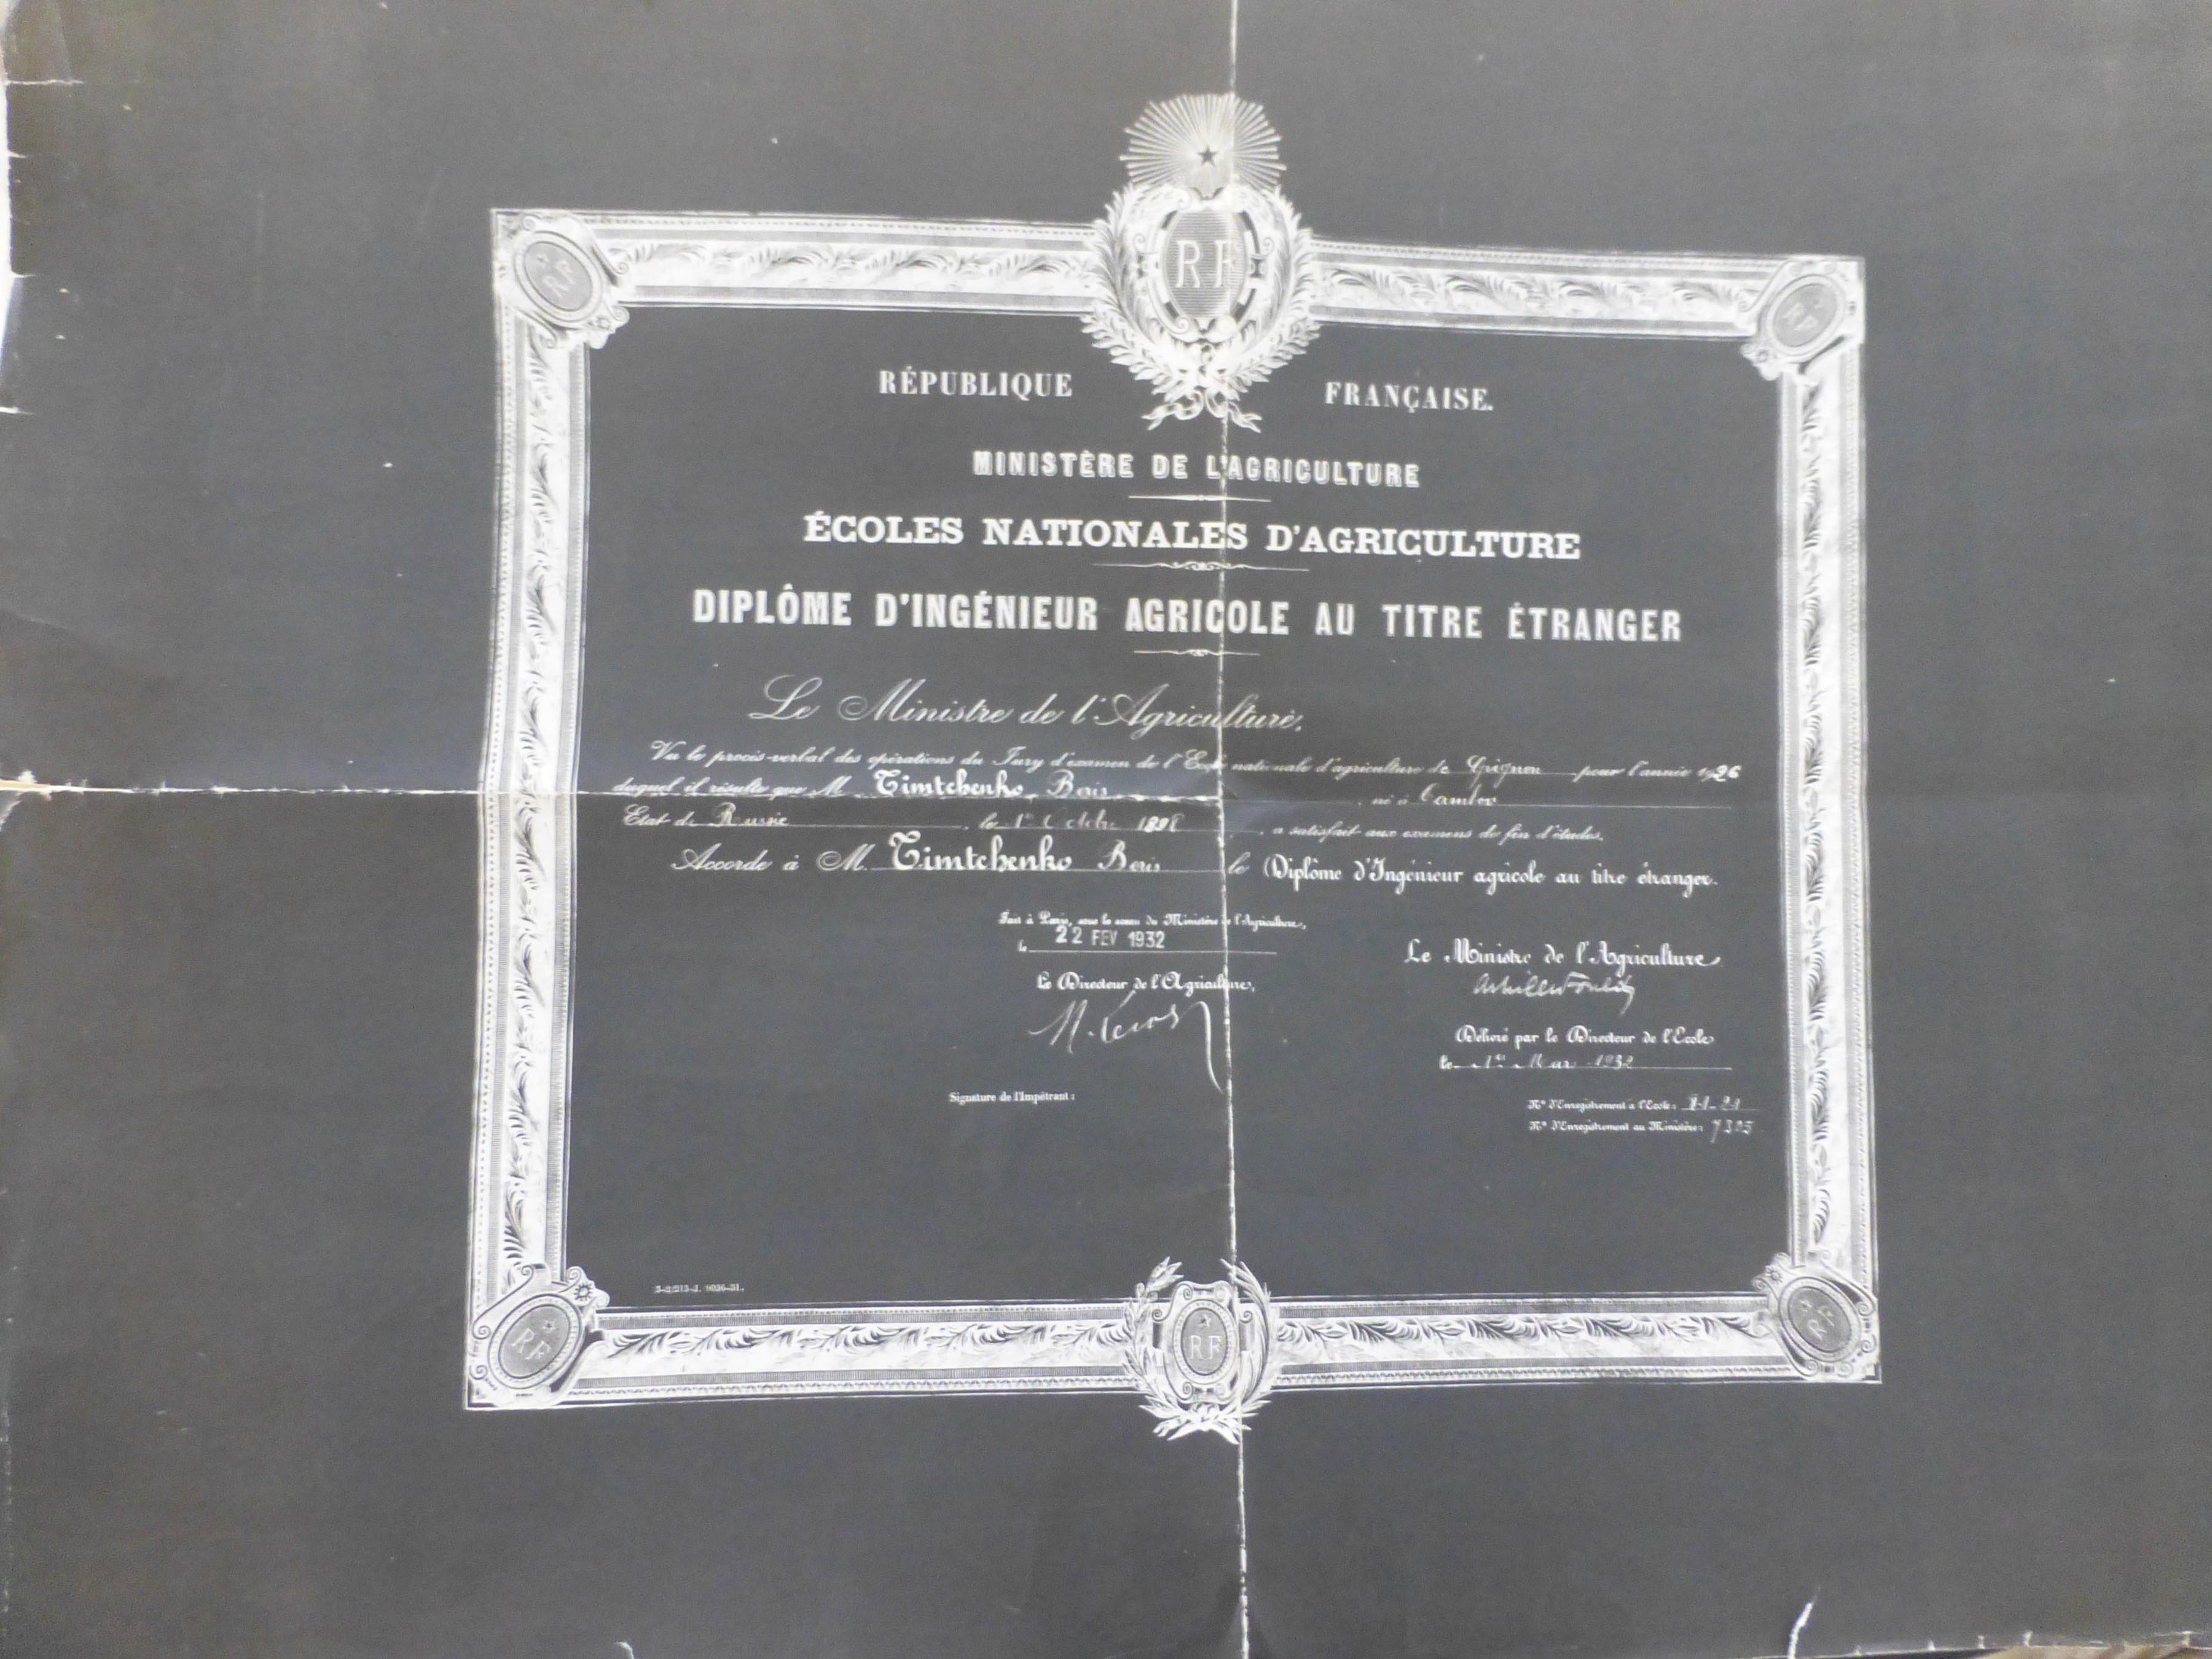 RF
RF
RF
RÉPUBLIQUE FRANÇAISE.
MINISTÈRE DE L'AGRICULTURE
ÉCOLES NATIONALES D'AGRICULTURE
DIPLÔME D'INGÉNIEUR AGRICOLE AU TITRE ÉTRANGER
Le Ministre de l'Agriculture,
Vu le procès-verbal des opérations du Jury d'examen de l'École nationale d'agriculture de Grignon pour l'année 1926
duquel il résulte que M. Timtchenko Boris, né à Tambov
Etat de Russie, le 1er Octobre 1898, a satisfait aux examens de fin d'études.
Accorde à M. Timtchenko Boris le Diplôme d'Ingénieur agricole au titre étranger.
Fait à Paris, sous le sceau du Ministère de l'Agriculture,
le 22 FEV 1932
Le Directeur de l'Agriculture,
Le Ministre de l'Agriculture
Délivré par le Directeur de l'Ecole
le 1er Mars 1932
Signature de l'Impétrant :
N° d'Enregistrement à l'Ecole :
N° d'Enregistrement au Ministère : 7305
RF
RF
RF